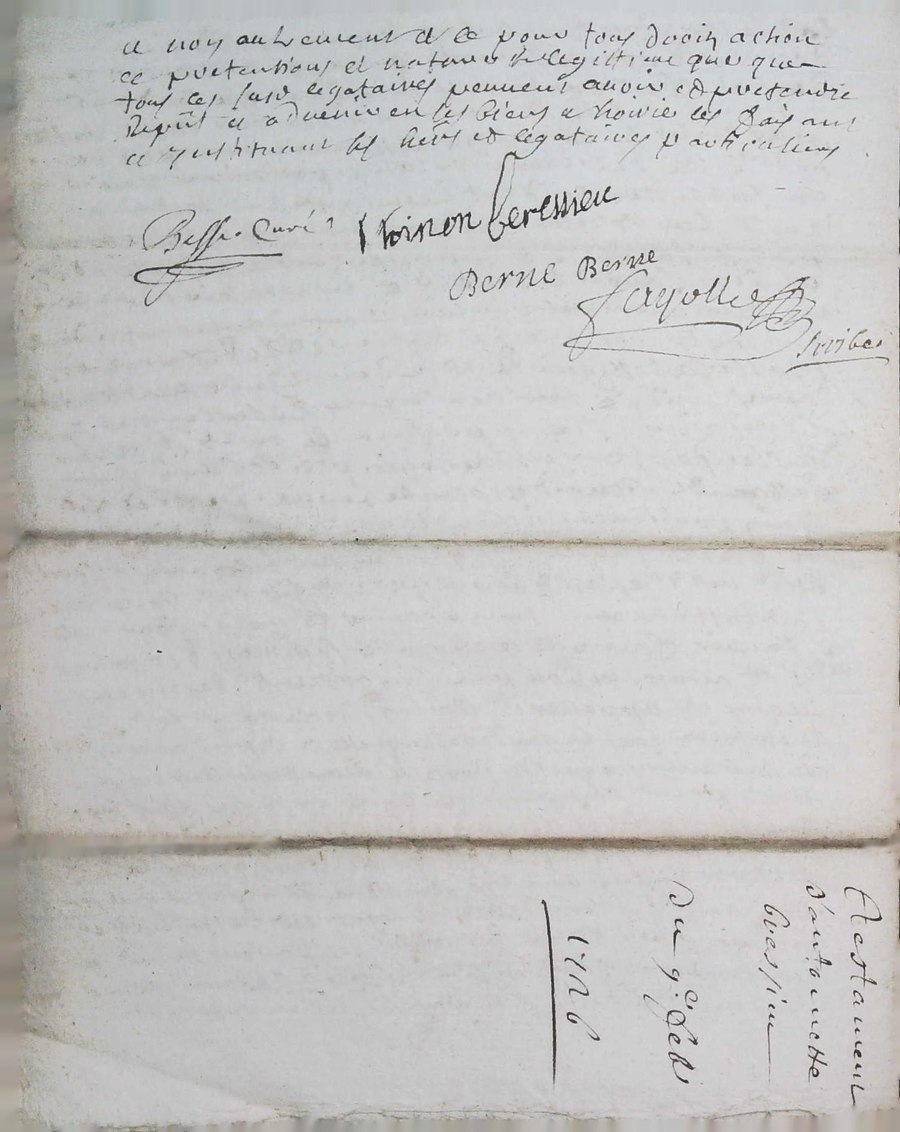 et non autrement et ce pour tous droits action
et pretentions et nature de legittime que que
tous ces susd legataires peuvent avoir et pretendre
et advenir en ses biens et hoirie les faisant
et instituant ses heirs et legataires particuliers
Besse Curé
thoinon beressieu
Berne Berne
fayolle
scribe
Testament
d'antoinette
bressieu
Du 9e feb
1726